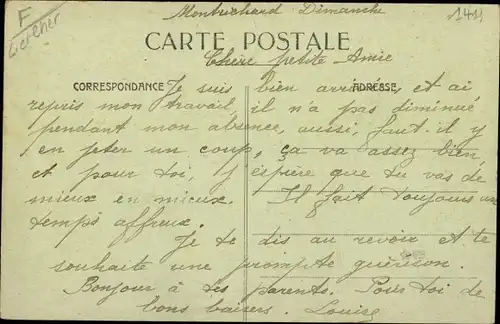 F
Montrichard Dimanche
1411
CARTE POSTALE
Chère petite Amie
CORRESPONDANCE
ADRESSE
Je suis bien arrivée, et ai
repris mon travail, il n'a pas diminué
pendant mon absence, aussi, faut-il y
en jeter un coup, ça va assez bien,
et pour toi, j'espère que tu vas de
mieux en mieux. Il fait toujours un
temps affreux.
Je te dis au revoir et te
souhaite une prompte guérison.
Bonjour à tes parents. Pour toi de
bons baisers. Louise